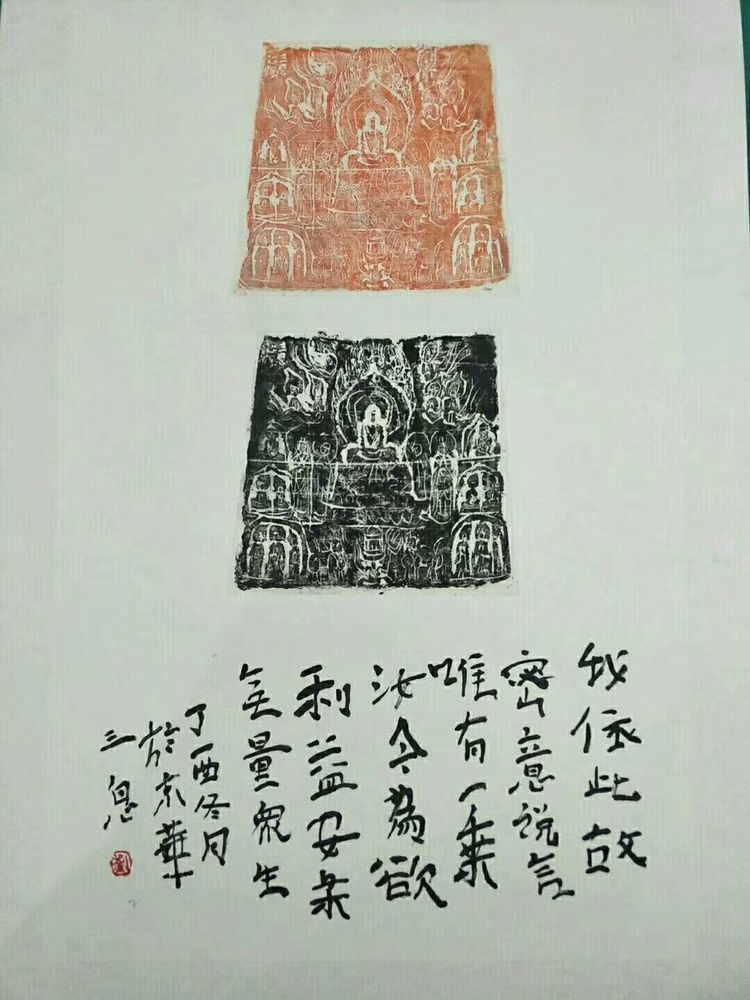 我依此故
密意说言
唯有一乘
汝今為欲
利益安乐
無量眾生
丁酉冬月
於京華
三息